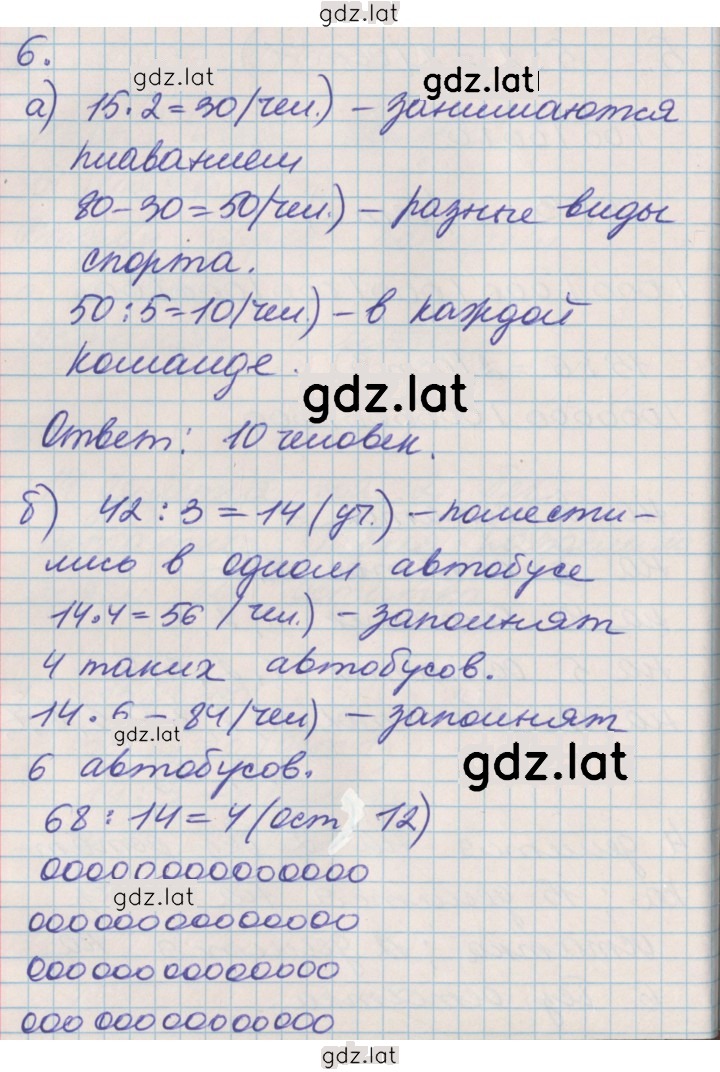 gdz.lat
6.
gdz.lat
gdz.lat
а) 15·2=30(чел.) – занимаются
плаванием
80-30=50(чел.) – разные виды
спорта.
50:5=10(чел.) – в каждой
команде.
gdz.lat
Ответ: 10 человек.
б) 42:3=14(уч.) – помести-
лись в одном автобусе
14·4=56 (чел.) – заполнят
4 таких автобусов.
14·6 = 84(чел) – заполнят
gdz.lat
6 автобусов.
gdz.lat
68:14=4(ост, 12)
00000000000000
gdz.lat
00000000000000
00000000000000
00000000000000
gdz.lat